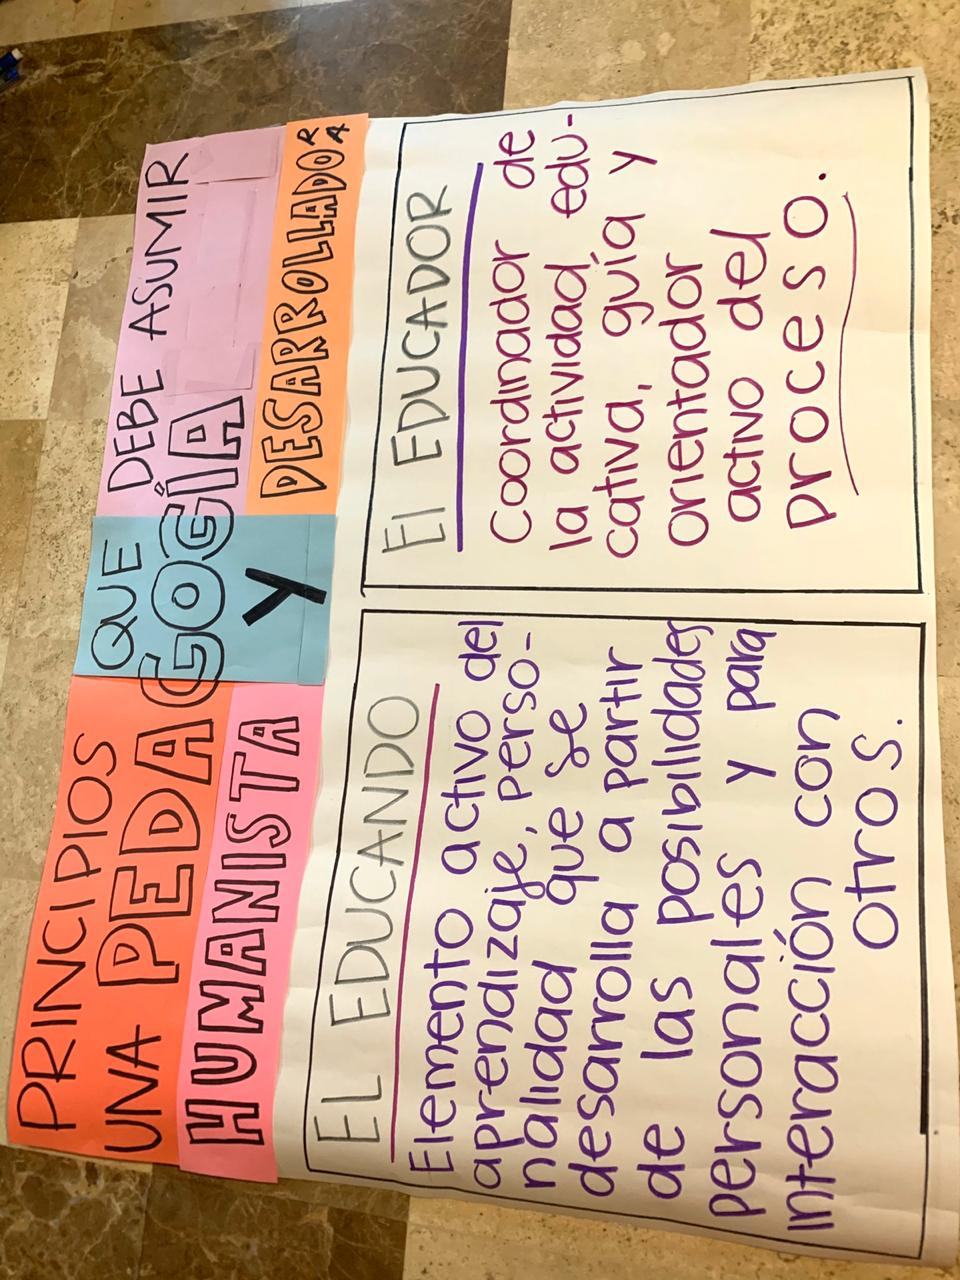 PRINCIPIOS QUE DEBE ASUMIR
UNA PEDAGOGÍA
HUMANISTA Y DESARROLLADORA
EL EDUCANDO
Elemento activo del
aprendizaje, perso-
nalidad que se
desarrolla a partir
de las posibilidades
personales y para
interacción con
otros.
El EDUCADOR
Coordinador de
la actividad edu-
cativa, guía y
orientador
activo del
proceso.